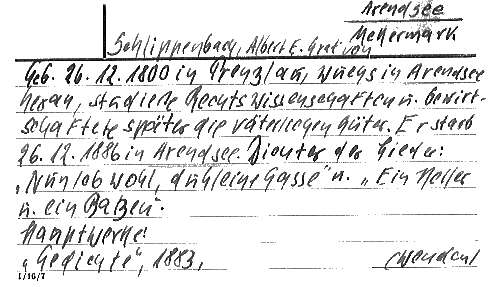 Arendsee
Mettermark
Schlippenbach, Albert E. Graf von
Geb. 26. 12. 1800 in Prenzlau, wuchs in Arendsee
heran, studierte Rechtswissenschaften u. bewirt-
schaftete später die väterlichen Güter. Er starb
26. 12. 1886 in Arendsee. Dichter der Lieder:
„Nun leb wohl, du kleine Gasse" u. „Ein Heller
u. ein Batzen".
Hauptwerke:
„Gedichte", 1883,
(Wendou)
1/16/7